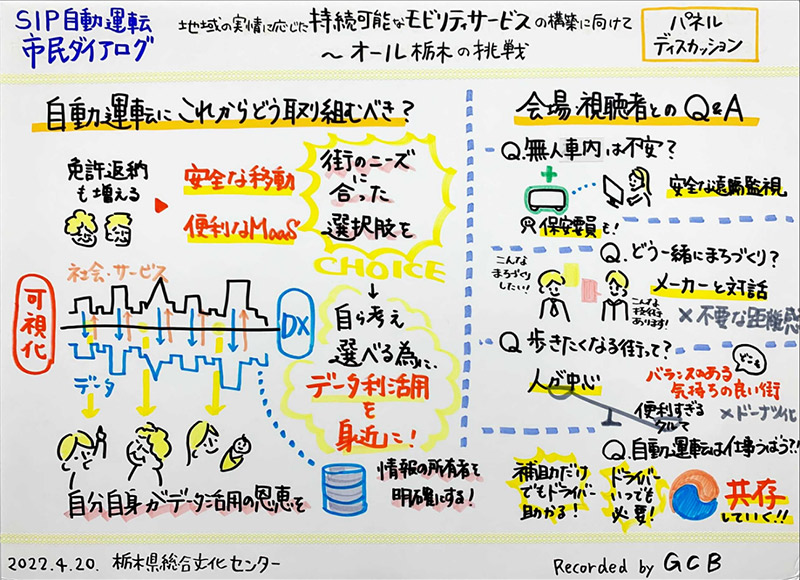 SIP自動運転
市民ダイアログ
地域の実情に応じた持続可能なモビリティサービスの構築に向けて
～オール栃木の挑戦
パネル
ディスカッション
自動運転にこれからどう取り組むべき?
免許返納
も増える
安全な移動
便利なMaaS
街のニーズ
に
合った
選択肢を
CHOICE
可視化
社会・サービス
DX
データ
自ら考え
選べる為に、
データ利活用
を
身近に!
自分自身がデータ活用の恩恵を
情報の所有者を
明確にする!
会場・視聴者とのQ&A
Q.無人車内は不安?
安全な遠隔監視
保安要員も!
Q.どう一緒にまちづくり?
こんな
まちづくり
したい!
こんな
技術
あります!
メーカーと対話
×不要な距離感
Q.歩きたくなる街って?
人が中心
バランスのある
気持ちの良い街
どこも
便利すぎる
×ドーナツ化
Q.自動運転は仕事うばう?!
補助だけ
でもドライバー
助かる!
ドライバー
いつでも
必要!
共存
していく!!
2022.4.20. 栃木県総合文化センター
Recorded by GCB